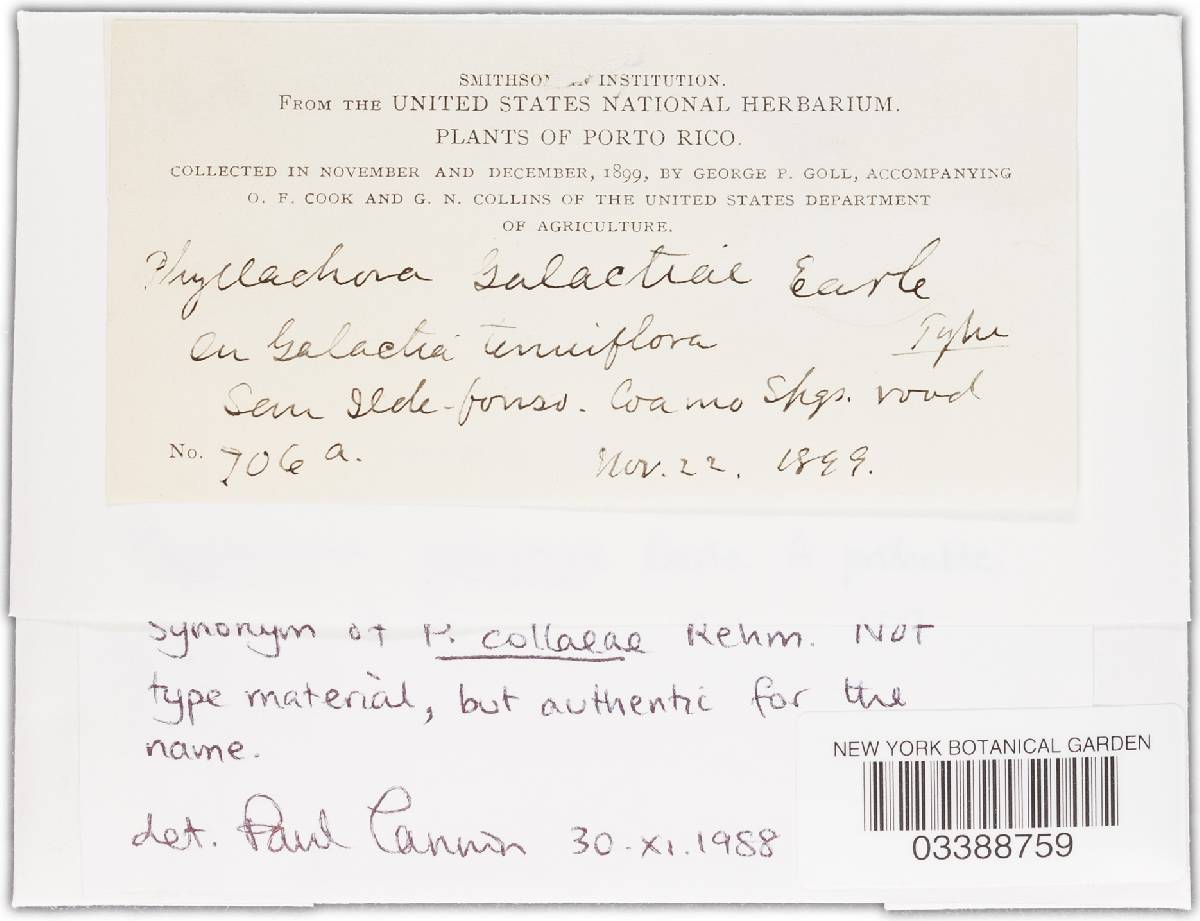 SMITHSONIAN INSTITUTION.
FROM THE UNITED STATES NATIONAL HERBARIUM.
PLANTS OF PORTO RICO.
COLLECTED IN NOVEMBER AND DECEMBER, 1899, BY GEORGE P. GOLL, ACCOMPANYING
O. F. COOK AND G. N. COLLINS OF THE UNITED STATES DEPARTMENT
OF AGRICULTURE.
Phyllachora Galactiae Earle
On Galactia tenuiflora Type
San Ilde-fonso. Coamo Spgs. road
No. 706 a. Nov. 22, 1899.
synonym of P. collaeae Rehm. Not
type material, but authentic for the
name.
det. Paul Cannon 30-XI.1988
NEW YORK BOTANICAL GARDEN
03388759